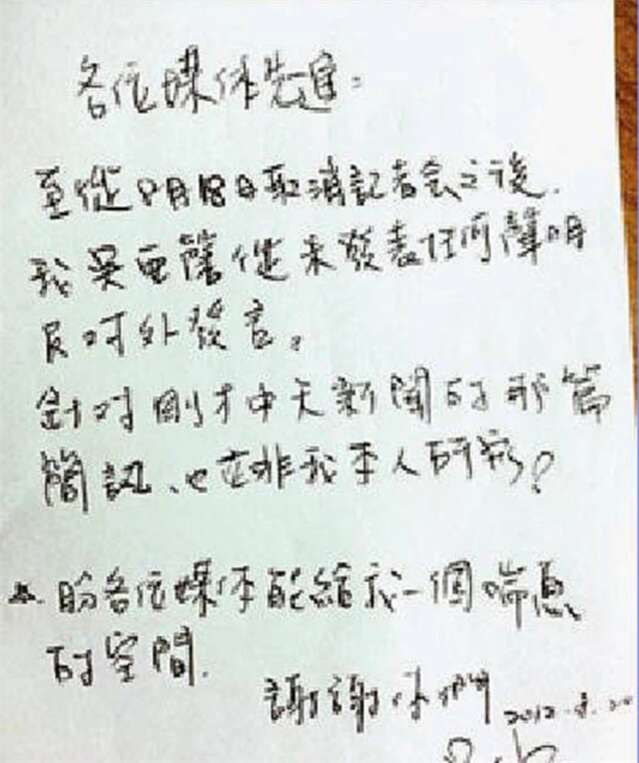 各位媒体先進：
至從8月18日取消記者会之後.
我吳亞馨從未發表任何聲明
及对外發言。
針对剛才中天新聞的那篇
簡訊、也並非我本人所發！
盼各位媒体能給我一個喘息
的空間.
謝謝你們 2012.8.20